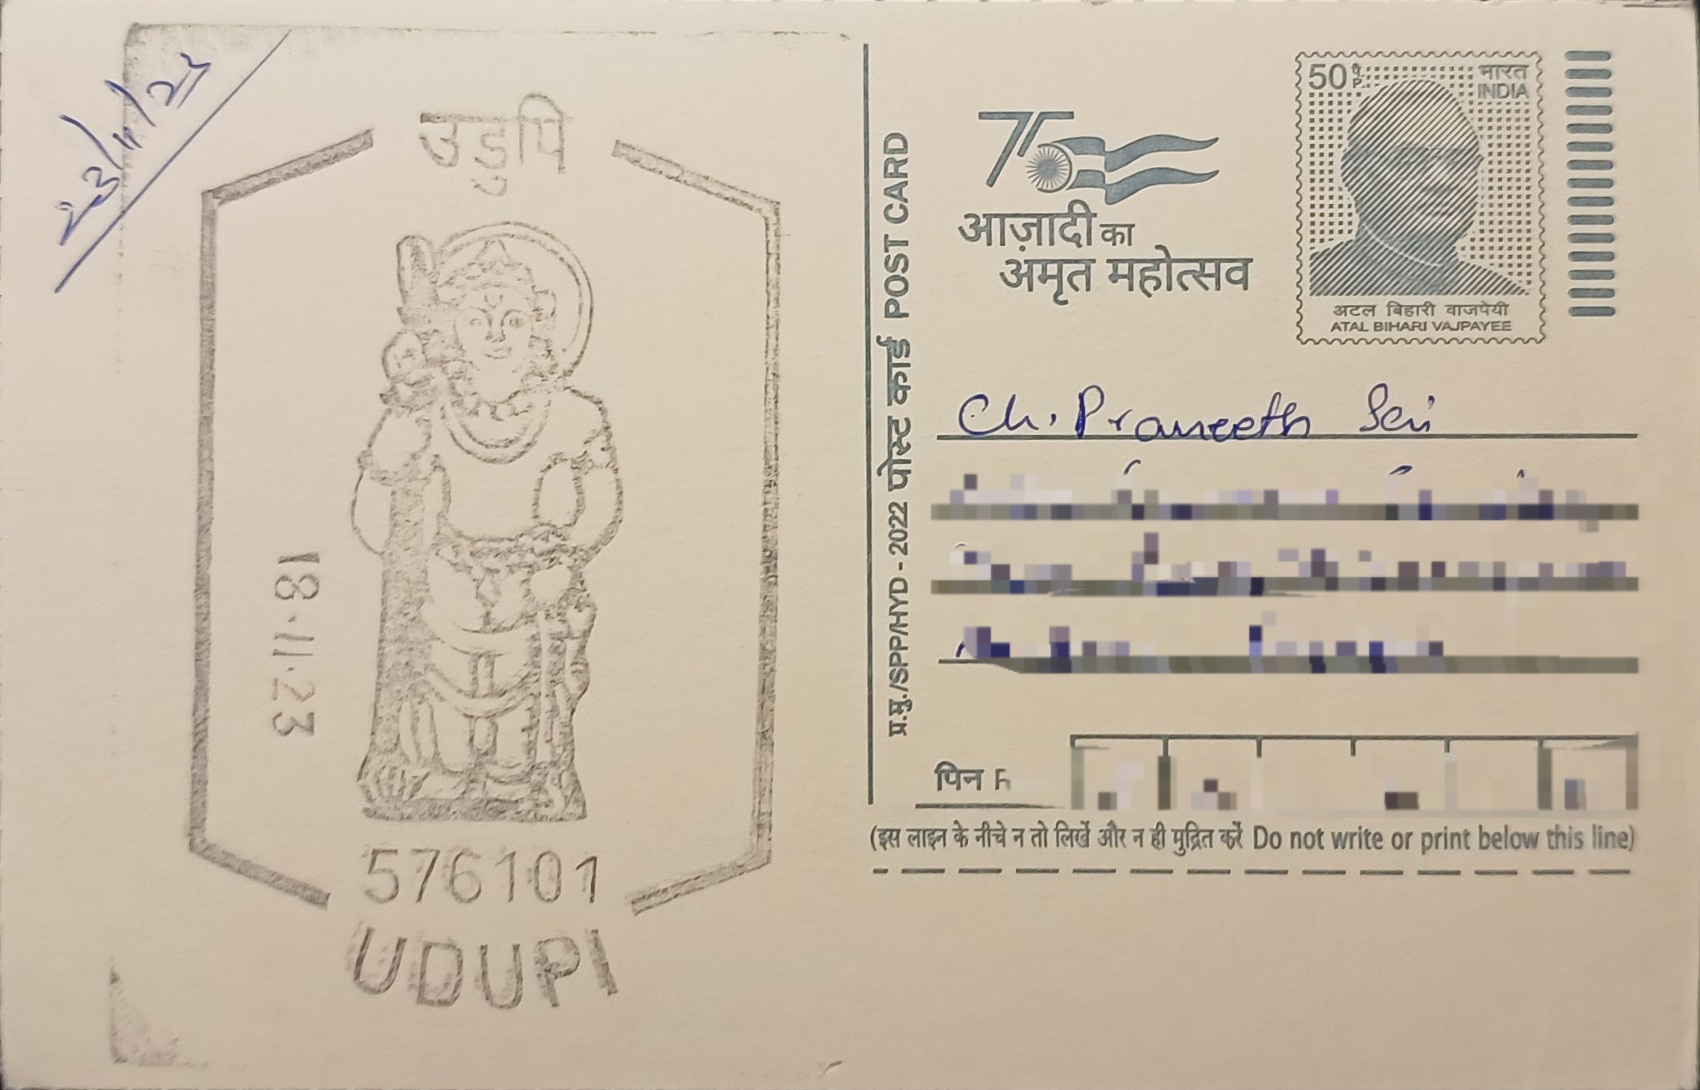 23/11/23
उडुपि
18.11.23
576101
UDUPI
प्र.मु./SPP/HYD - 2022 पोस्ट कार्ड POST CARD
75
आज़ादी का
अमृत महोत्सव
50 पै. P.
भारत
INDIA
अटल बिहारी वाजपेयी
ATAL BIHARI VAJPAYEE
Ch. Praneeth Sai
पिन
(इस लाइन के नीचे न तो लिखें और न ही मुद्रित करें Do not write or print below this line)